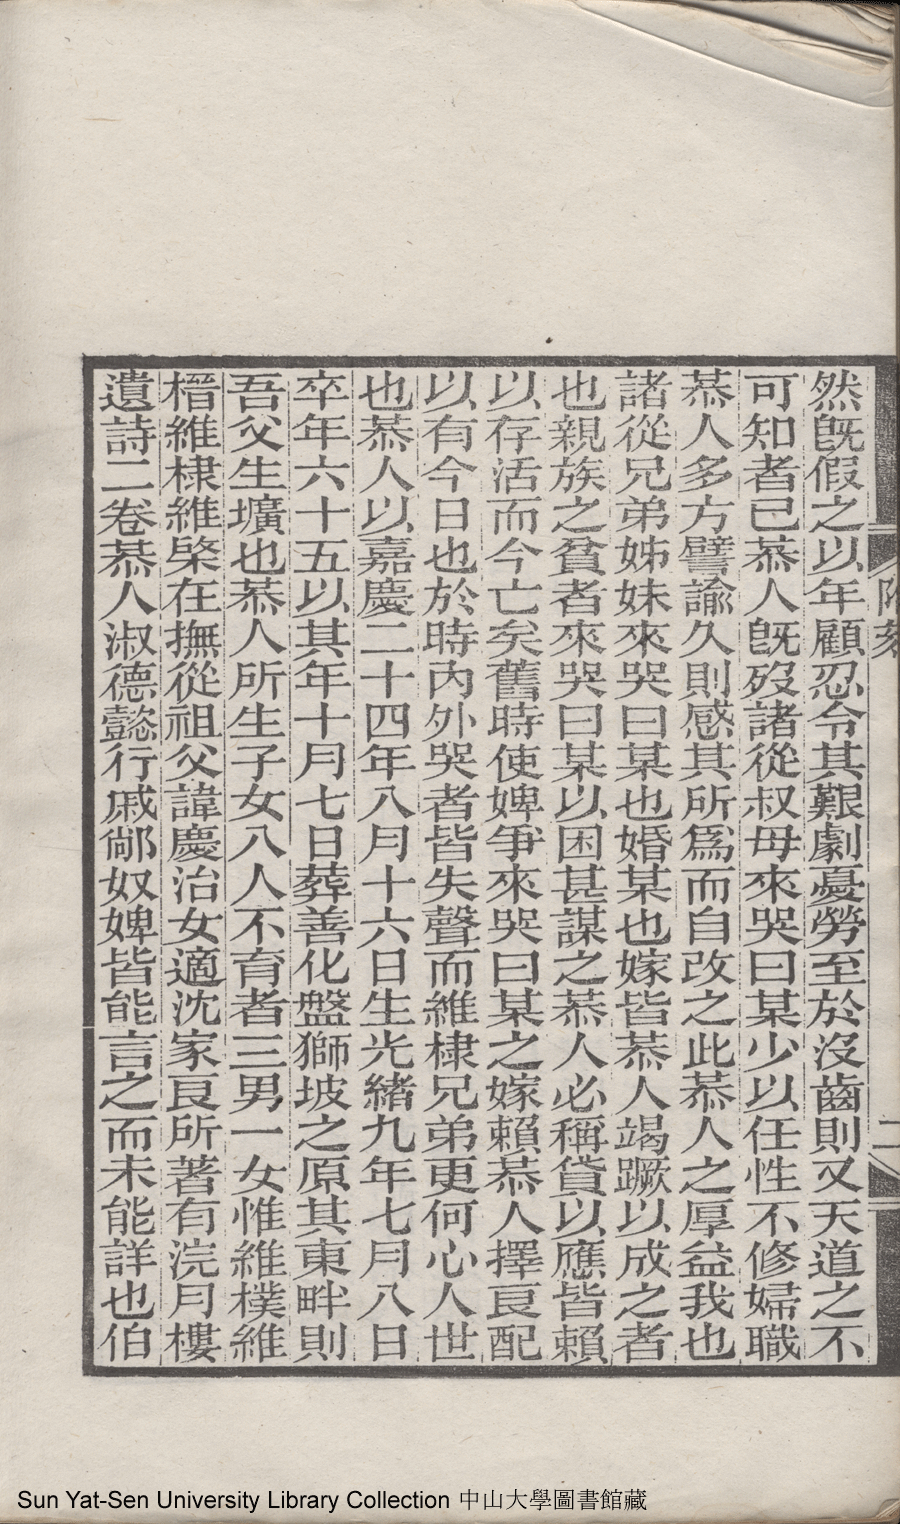 然旣假之以年顧忍令其艱劇憂勞至於沒齒則又天道之不
可知者已恭人旣歿諸從叔母來哭曰某少以任性不修婦職
恭人多方譬諭久則感其所爲而自改之此恭人之厚益我也
諸從兄弟姊妹來哭曰某也婚某也嫁皆恭人竭蹶以成之者
也親族之貧者來哭曰某以困甚謀之恭人必稱貸以應皆賴
以存活而今亡矣舊時使婢爭來哭曰某之嫁賴恭人擇良配
以有今日也於時內外哭者皆失聲而維棣兄弟更何心人世
也恭人以嘉慶二十四年八月十六日生光緒九年七月八日
卒年六十五以其年十月七日葬善化盤獅坡之原其東畔則
吾父生壙也恭人所生子女八人不育者三男一女惟維樸維
榗維棣維棨在撫從祖父諱慶治女適沈家良所著有浣月樓
遺詩二卷恭人淑德懿行戚鄰奴婢皆能言之而未能詳也伯
附刻
二
Sun Yat-Sen University Library Collection 中山大學圖書館藏